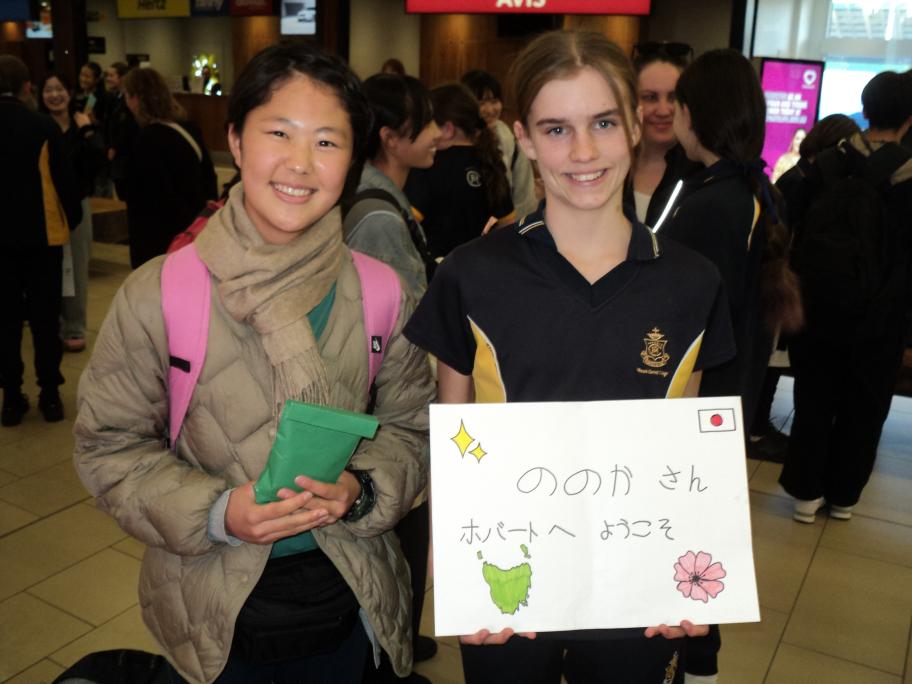 Hertz
AVIS
ののか さん
ホバートへ ようこそ